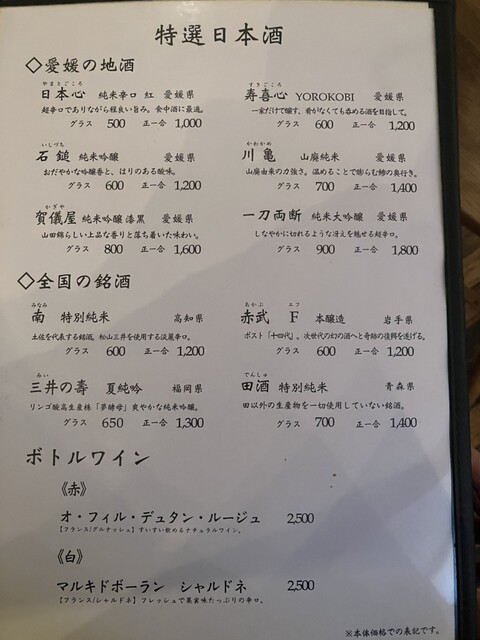 特選日本酒
◇愛媛の地酒
やまとごころ
日本心 純米辛口 紅 愛媛県
超辛口でありながら程良い旨み。食中酒に最適。
グラス 500 正一合 1,000
すきごころ
寿喜心 YOROKOBI 愛媛県
一家だけで醸す、肴がなくても呑める酒を目指して。
グラス 600 正一合 1,200
いしづち
石鎚 純米吟醸 愛媛県
おだやかな吟醸香と、はりのある酸味。
グラス 600 正一合 1,200
かわかめ
川亀 山廃純米 愛媛県
山廃由来の力強さ。温めることで膨らむ鰺の奥行き。
グラス 700 正一合 1,400
かぎや
賀儀屋 純米吟醸 漆黒 愛媛県
山田錦らしい上品な香りと落ち着いた味わい。
グラス 800 正一合 1,600
一刀両断 純米大吟醸 愛媛県
しなやかに切れるような冴えを魅せる超辛口。
グラス 900 正一合 1,800
◇全国の銘酒
みなみ
南 特別純米 高知県
土佐を代表する銘酒。松山三井を使用する淡麗辛口。
グラス 600 正一合 1,200
あかぶ エフ
赤武 F 本醸造 岩手県
ポスト「十四代」。次世代の幻の酒へと奇跡の復興を遂げる。
グラス 600 正一合 1,200
みい
三井の寿 夏純吟 福岡県
リンゴ酸高生産株「夢酵母」爽やかな純米吟醸。
グラス 650 正一合 1,300
でんしゅ
田酒 特別純米 青森県
田以外の生産物を一切使用していない銘酒。
グラス 700 正一合 1,400
ボトルワイン
《赤》
オ・フィル・デュタン・ルージュ 2,500
【フランス/グルナッシュ】すいすい飲めるナチュラルワイン。
《白》
マルキドボーラン シャルドネ 2,500
【フランス/シャルドネ】フレッシュで果実味たっぷりの辛口。
※本体価格での表記です。